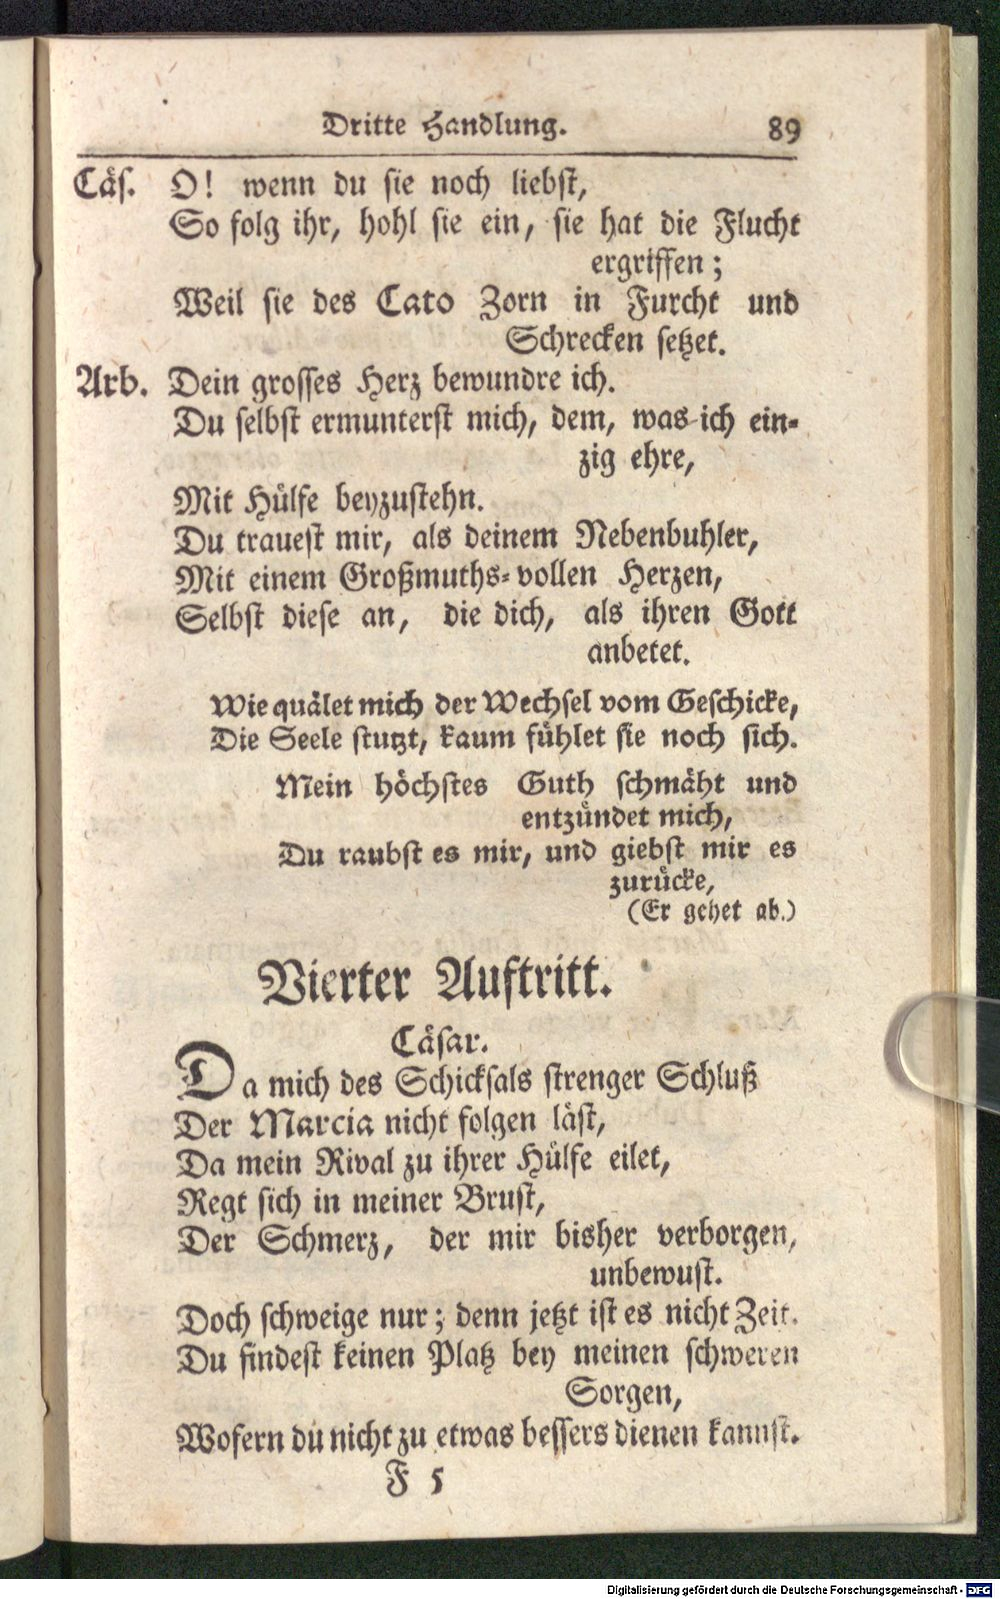 Dritte Handlung. 89
Cäs. O! wenn du sie noch liebst,
So folg ihr, hohl sie ein, sie hat die Flucht
ergriffen;
Weil sie des Cato Zorn in Furcht und
Schrecken setzet.
Arb. Dein grosses Herz bewundre ich.
Du selbst ermunterst mich, dem, was ich ein-
zig ehre,
Mit Hülfe beyzustehn.
Du trauest mir, als deinem Nebenbuhler,
Mit einem Großmuths-vollen Herzen,
Selbst diese an, die dich, als ihren Gott
anbetet.
Wie quälet mich der Wechsel vom Geschicke,
Die Seele stutzt, kaum fühlet sie noch sich.
Mein höchstes Guth schmäht und
entzündet mich,
Du raubst es mir, und giebst mir es
zurücke,
(Er gehet ab.)
Vierter Auftritt.
Cäsar.
Da mich des Schicksals strenger Schluß
Der Marcia nicht folgen läst,
Da mein Rival zu ihrer Hülfe eilet,
Regt sich in meiner Brust,
Der Schmerz, der mir bisher verborgen,
unbewust.
Doch schweige nur; denn jetzt ist es nicht Zeit.
Du findest keinen Platz bey meinen schweren
Sorgen,
Wofern du nicht zu etwas bessers dienen kannst.
F 5
Digitalisierung gefördert durch die Deutsche Forschungsgemeinschaft - DFG